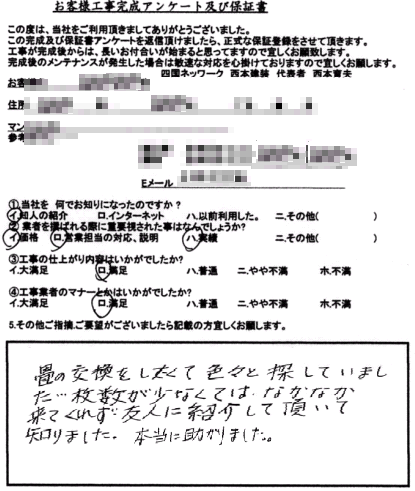 お客様工事完成アンケート及び保証書
この度は、当社をご利用頂きましてありがとうございました。
この完成及び保証書アンケートを返信頂けましたら、正式な保証登録をさせて頂きます。
工事が完成後からは、長いお付合いが始まると思ってますので宜しくお願い致します。
完成後のメンテナンスが発生した場合は敏速な対応を心掛けておりますので宜しくお願いします。
四国ネットワーク 西本建装 代表者 西本憲夫
お客様
住所
マン
参考
Eメール
①.当社を 何でお知りになったのですか?
イ.知人の紹介 ロ.インターネット ハ.以前利用した。 ニ.その他( )
② 業者を選ばれる際に重要視された事はなんでしょうか?
イ.価格 ロ.営業担当の対応、説明 ハ.実績 ニ.その他( )
③工事の仕上がり内容はいかがでしたか?
イ.大満足 ロ.満足 ハ.普通 ニ.やや不満 ホ.不満
④工事業者のマナーとかはいかがでしたか?
イ.大満足 ロ.満足 ハ.普通 ニ.やや不満 ホ.不満
5.その他ご指摘、ご要望がございましたら記載の方宜しくお願します。
畳の交換をしたくて色々と探していまし
た…枚数が少なくては、なかなか
来てくれず友人に紹介して頂いて
知りました。本当に助かりました。